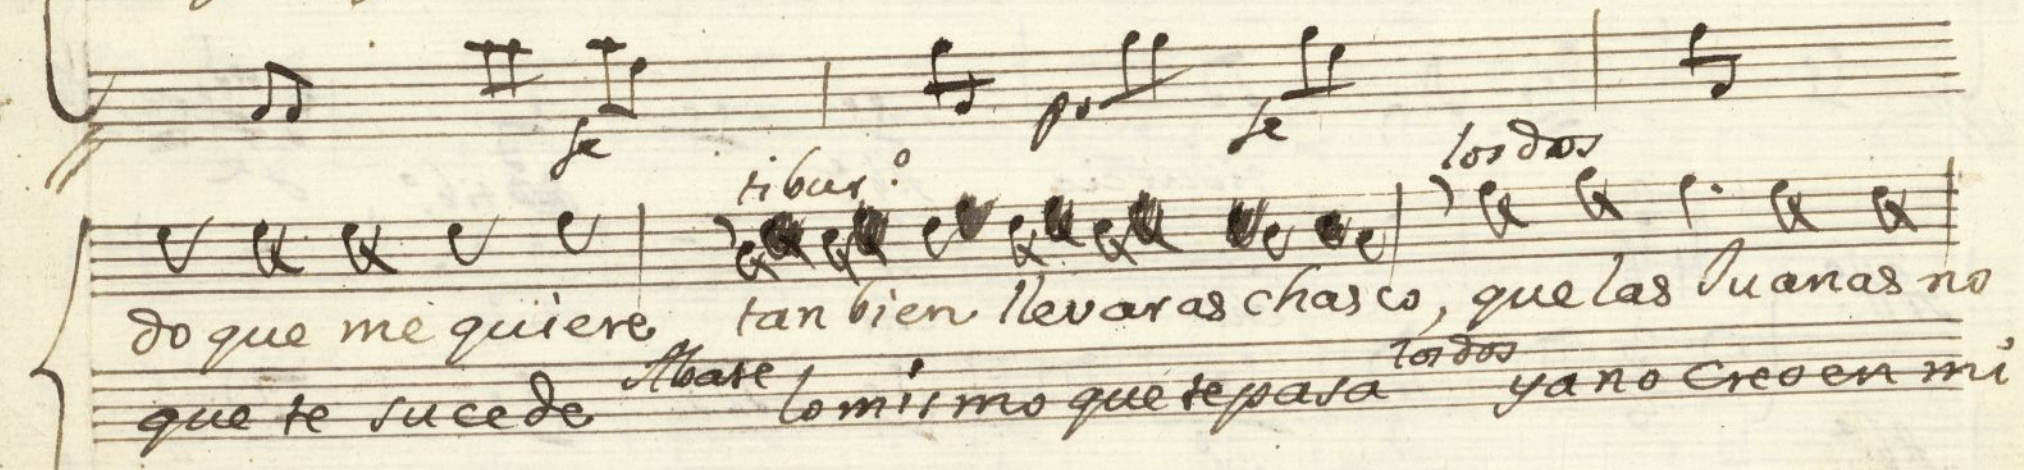 fe po fe
tibur.º los dos
do que me quiere tan bien llevaras chasco, que las Juanas no
Abate los dos
que te sucede lo mismo que te pasa ya no creo en mi